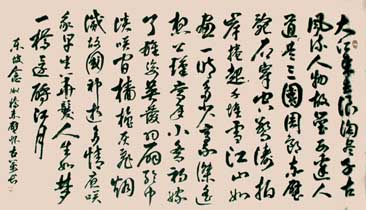 大江东去浪淘尽千古
风流人物故垒西边人
道是三國周郎赤壁
乱石穿空惊涛拍
岸捲起千堆雪江山如
画一时多少豪杰遥
想公瑾当年小乔初嫁
了雄姿英发羽扇纶巾
谈笑间樯橹灰飞烟
灭故國神游多情应笑
我早生华髮人生如梦
一樽还酹江月
东坡念奴娇赤壁怀古